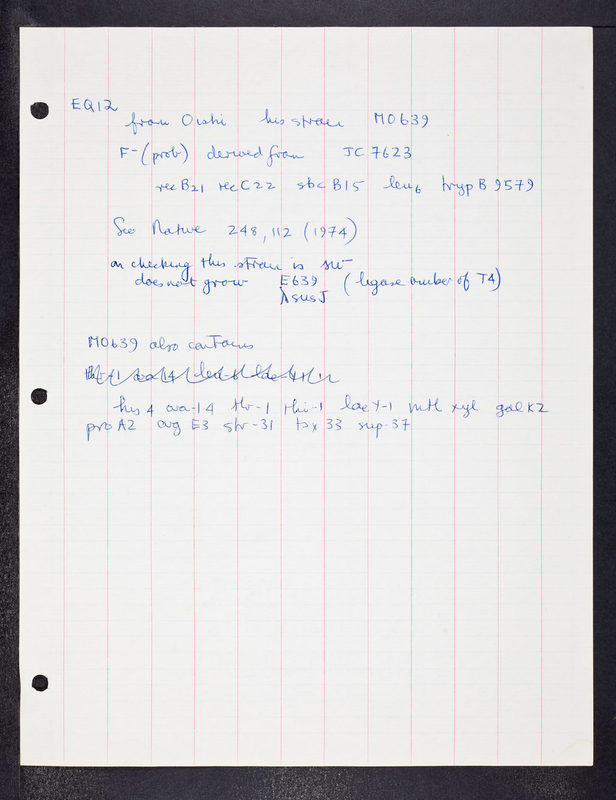 EQ12
from Oishi his strain MO639
F- (prob) derived from JC7623
recB21 recC22 sbcB15 leu6 trypB 9579
See Nature 248, 112 (1974)
on checking this strain is su-
does not grow E639 (ligase amber of T4)
λsusJ
MO639 also contains
his4 ara-14 thr-1 thi-1 lacY-1 mtl xyl galK2
proA2 argE3 str-31 tsx33 sup-37